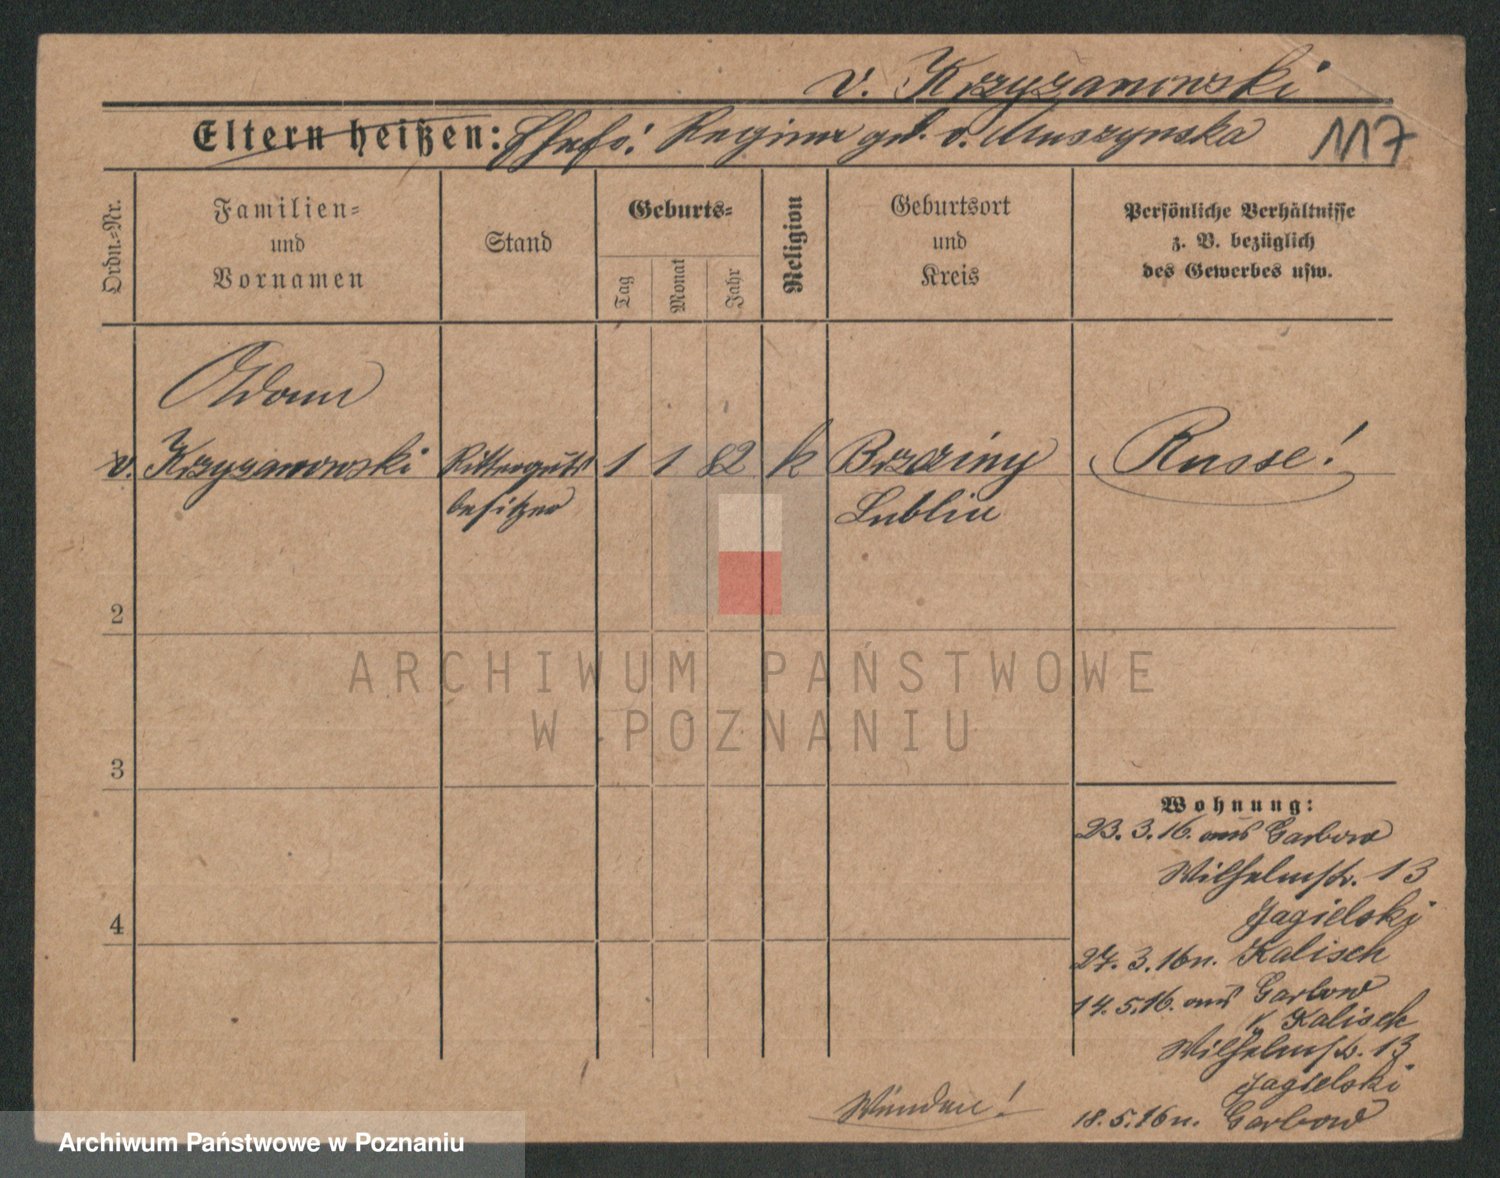 v. Krzyzanowski
Eltern heißen: Ehefr: Regina geb. v. Muszynska
117
Ordn.=Nr.
Familien=
und
Vornamen
Stand
Geburts=
Tag
Monat
Jahr
Religion
Geburtsort
und
Kreis
Persönliche Verhältnisse
z. B. bezüglich
des Gewerbes usw.
Adam
v. Krzyzanowski Ritterguts 1 1 82 k Brzeziny Russe!
besitzer Lublin
2
3
4
ARCHIWUM PAŃSTWOWE
W POZNANIU
Wohnung:
23. 3. 16. aus Garbow
Wilhelmstr. 13
Jagielski
27. 3. 16 n. Kalisch
14. 5. 16. aus Garbow
Kalisch
Wilhelmstr. 13
Jagielski
18. 5. 16 n. Garbow
Archiwum Państwowe w Poznaniu